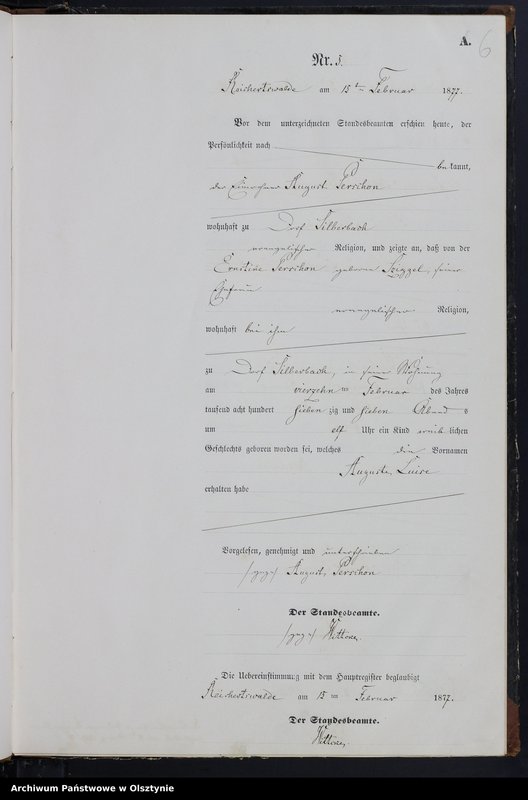 A.
6
Nr. 5.
Reichertswalde am 15ten Februar 1877.
Vor dem unterzeichneten Standesbeamten erschien heute, der
Persönlichkeit nach
bekannt,
der Einwohner August Perschon
wohnhaft zu Dorf Silberbach
evangelischer Religion, und zeigte an, daß von der
Ernstine Perschon geborene, seiner
Ehefrau
evangelischer Religion,
wohnhaft bei ihm
zu Dorf Silberbach, in seiner Wohnung
am vierzehn ten Februar des Jahres
tausend acht hundert sieben zig und sieben Abend s
um elf Uhr ein Kind weib lichen
Geschlechts geboren worden sei, welches die Vornamen
Auguste, Luise
erhalten habe
Vorgelesen, genehmigt und unterschrieben
/gez:/ August Perschon
Der Standesbeamte.
/gez:/
Die Uebereinstimmung mit dem Hauptregister beglaubigt
Reichertswalde am 15ten Februar 1877.
Der Standesbeamte.
Archiwum Państwowe w Olsztynie